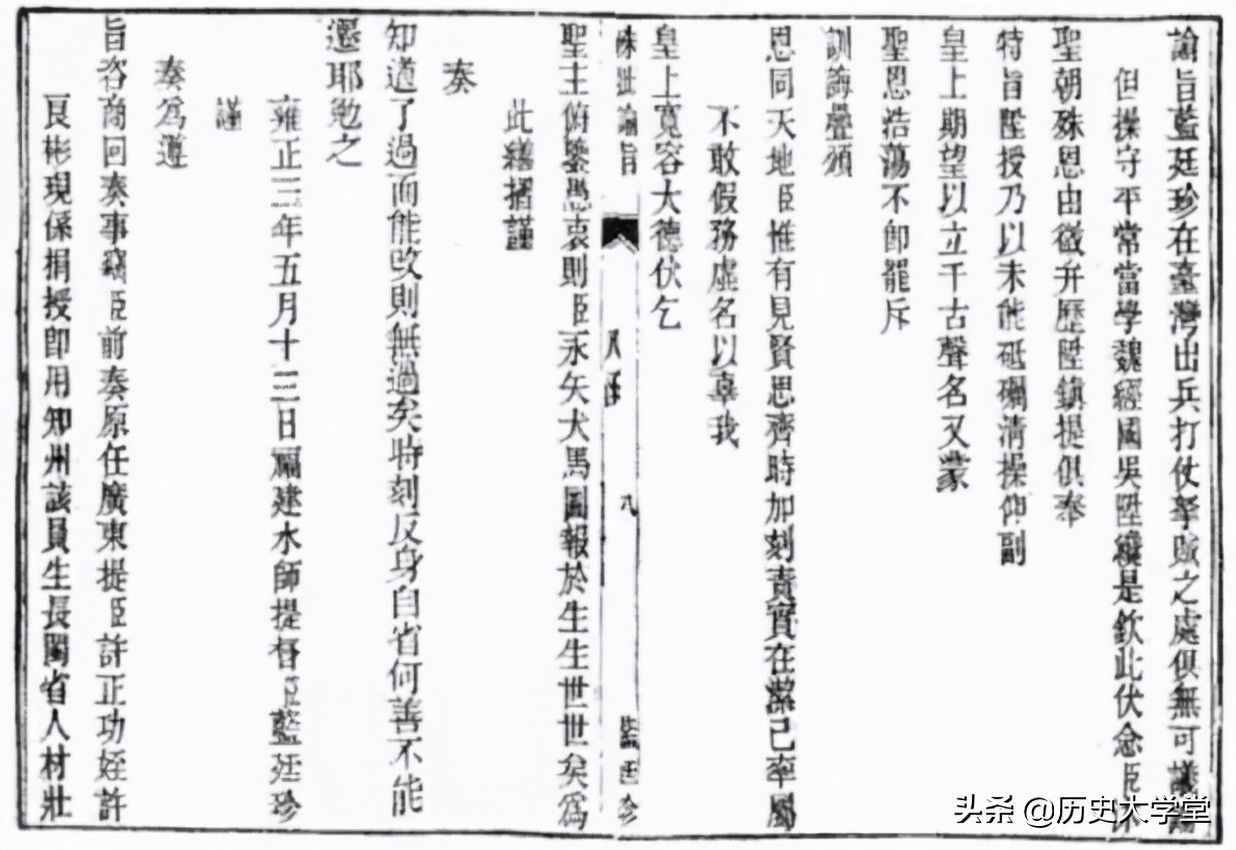 諭旨藍廷珍在臺灣出兵打仗拏賊之處俱無可議論
但操守平常當學魏經國吳陞纔是欽此伏念臣
聖朝殊恩由微弁歷陞鎮提俱奉
特旨陞授乃以未能砥礪清操仰副
皇上期望以立千古聲名又蒙
聖恩浩蕩不卽罷斥
訓誨疊頒
恩同天地臣惟有見賢思齊時加刻責實在潔己率屬
不敢假務虛名以辜我
皇上寬容大德伏乞
硃批諭旨
九
藍廷珍
聖主俯鑒愚衷則臣永矢犬馬圖報於生生世世矣爲
此繕摺謹
奏
知道了過而能改則無過矣時刻反身自省何善不能
遷耶勉之
雍正三年五月十三日福建水師提督臣藍廷珍
謹
奏爲遵
旨咨商回奏事竊臣前奏原任廣東提臣許正功姪許
良彬現係捐授卽用知州該員生長閩省人材壯
头条 @历史大学堂